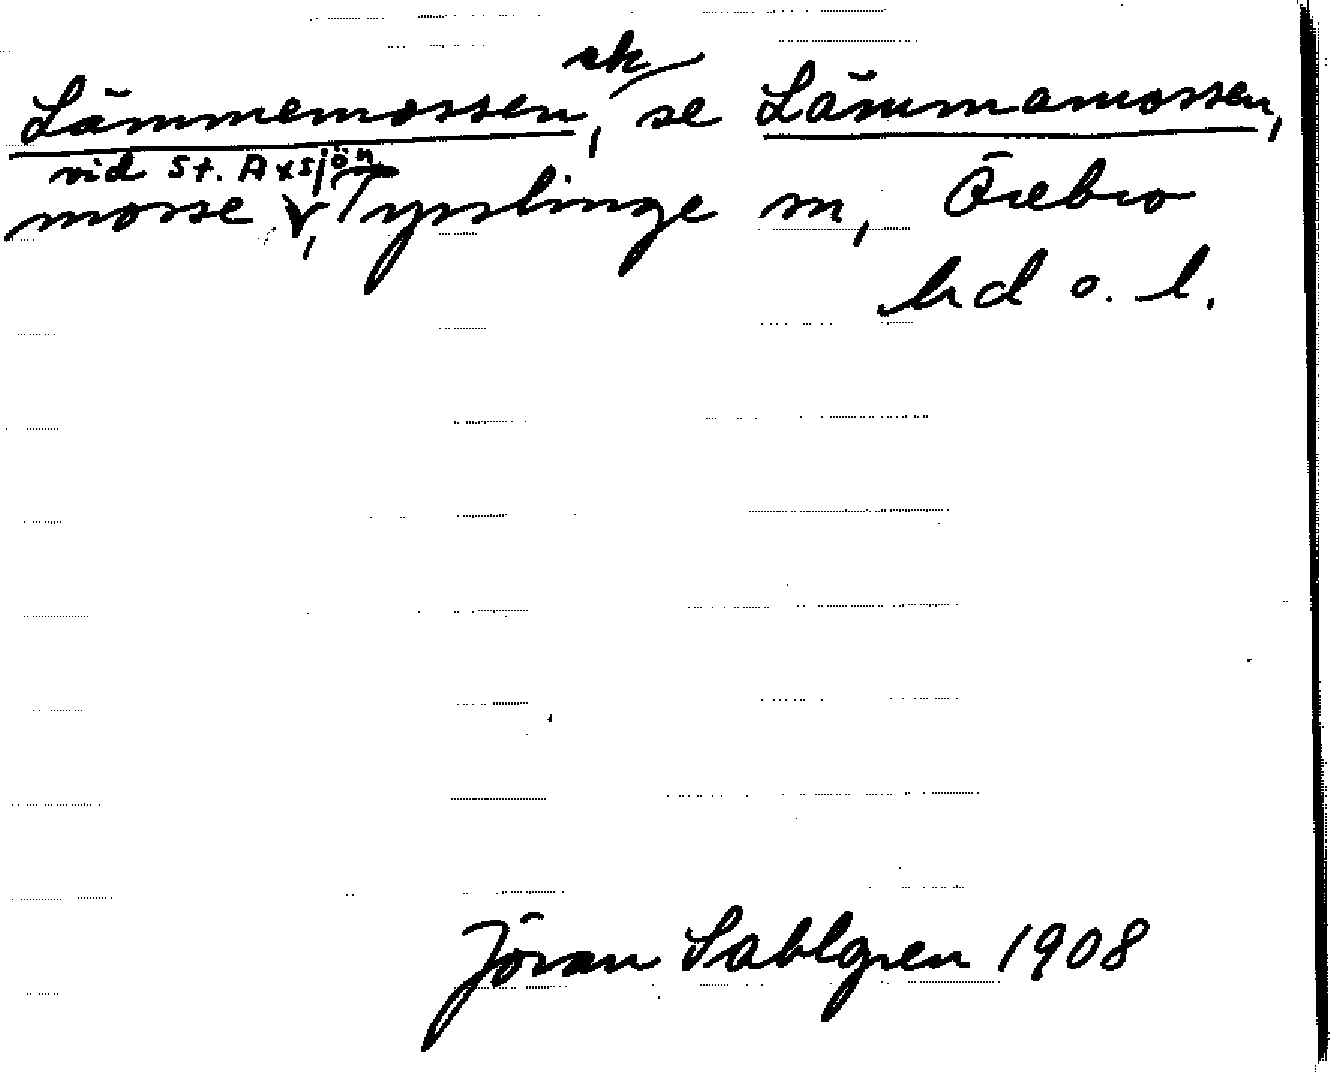 Lämmemossen, sk se Lämmamossen,
vid St. Axsjön
mosse, Tysslinge sn, Örebro
hd o. l.
Jöran Sahlgren 1908